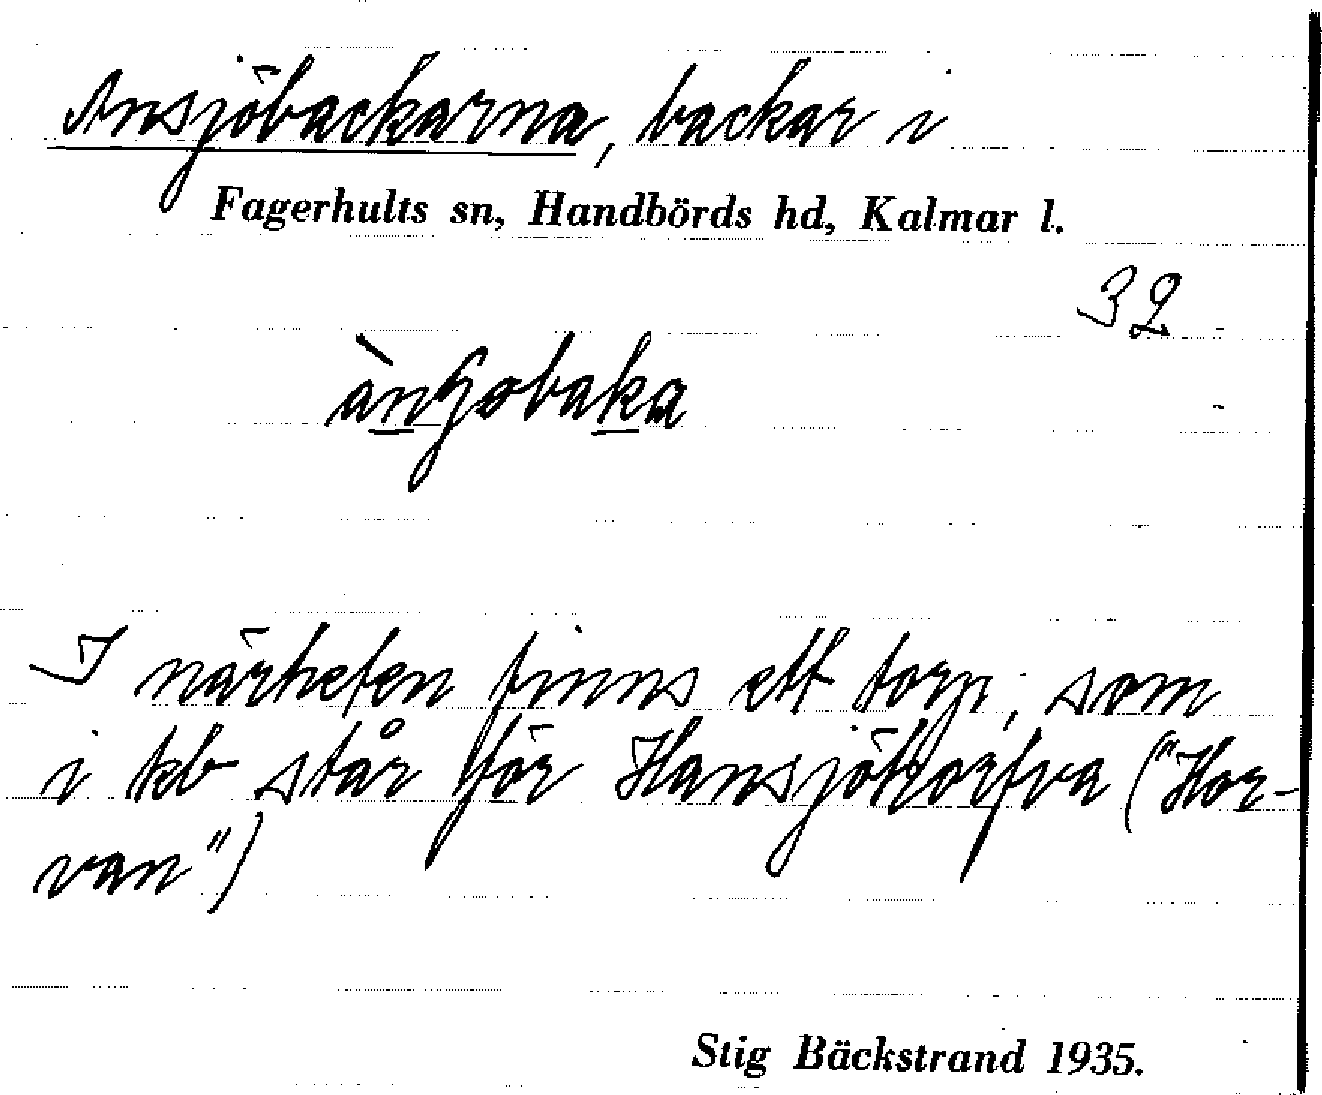 Ansjöbackarna, backar i
Fagerhults sn, Handbörds hd, Kalmar l.
32
I närheten finns ett torp, som
i kb står för Hansjöhorfva ("Hor-
van")
Stig Bäckstrand 1935.